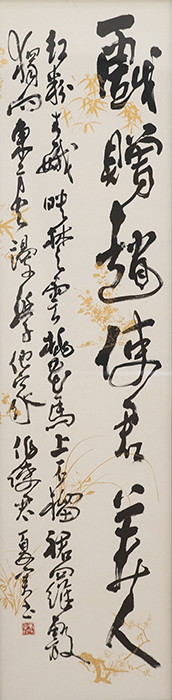 戲贈趙使君美人
紅粉青娥映楚雲桃花馬上石榴裙羅敷
獨向東方去謾學他家作使君